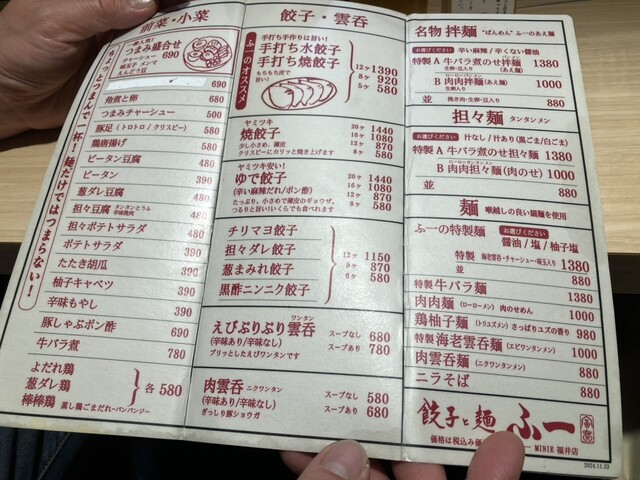 前菜・小菜
ちょっとつまんで一杯！麺だけではつまらない！
一番人気！
つまみ盛合せ
チャーシュー
味玉子 メンマ
えんどう豆
690
690
角煮と卵 680
つまみチャーシュー 500
豚足（トロトロ / クリスピー） 580
鶏唐揚げ 580
ピータン豆腐 480
ピータン 390
葱ダレ豆腐 480
担々豆腐 タンタンとうふ 辛味焼肉 480
担々ポテトサラダ 480
ポテトサラダ 390
たたき胡瓜 390
柚子キャベツ 390
辛味もやし 390
豚しゃぶポン酢 690
牛バラ煮 780
よだれ鶏
葱ダレ鶏
棒棒鶏 蒸し鶏ごまだれーバンバンジー
各 580
餃子・雲呑
ふーのオススメ
手打ち手作りは旨い！
手打ち水餃子
手打ち焼餃子
もちもち皮で
旨い！
12ヶ 1390
8ヶ 920
5ヶ 580
ヤミツキ
焼餃子
少し小さめ、薄皮
クリスピーにカリッと焼き上げます
20ヶ 1440
16ヶ 1080
12ヶ 870
8ヶ 580
ヤミツキ安い！
ゆで餃子
(辛い麻辣だれ/ポン酢)
たっぷり、小さめで薄皮のギョウザ。
つるりと旨い！いくらでも食べれます
20ヶ 1440
16ヶ 1080
12ヶ 870
8ヶ 580
チリマヨ餃子
担々ダレ餃子
葱まみれ餃子
黒酢ニンニク餃子
12ヶ 1150
9ヶ 870
6ヶ 580
えびぷりぷり雲呑 ワンタン
(辛味あり/辛味なし)
プリッとしたえびワンタンです
スープなし 680
スープあり 780
肉雲呑 ニクワンタン
(辛味あり/辛味なし)
ぎっしり豚ショウガ
スープなし 580
スープあり 680
名物 拌麺 "ばんめん" ふーのあえ麺
お選びください 辛い麻辣 / 辛くない醤油
特製 A 牛バラ煮のせ拌麺 (あえ麺) 1380
生卵・豆入り
B 肉肉拌麺 ローローバンメン (あえ麺) 1000
生卵・豆入り
並 挽き肉・生卵・豆入り 880
担々麺 タンタンメン
お選びください 汁なし / 汁あり(黒ごま/白ごま)
特製 A 牛バラ煮のせ担々麺 1380
B 肉肉担々麺 ローロータンタンメン (肉のせ) 1000
並 880
麺 喉越しの良い細麺を使用
ふーの特製麺 お選びください
醤油 / 塩 / 柚子塩
特製 海老雲呑・チャーシュー・味玉入り 1380
並 880
特製 牛バラ麺 1380
肉肉麺 (ローローメン) 肉のせめん 1000
鶏柚子麺 (トリユズメン) さっぱりユズの香り 980
特製 海老雲呑麺 (エビワンタンメン) 1000
肉雲呑麺 (ニクワンタンメン) 880
ニラそば 880
餃子と麺 ふー
価格は税込み価
MINIE 福井店
2024.11.23